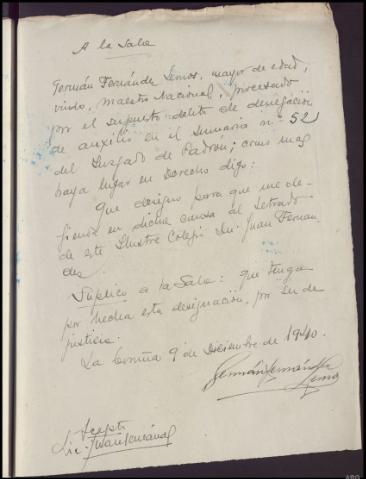 A la Sala
Germán Fernández Lemos, mayor de edad,
viudo, Maestro Nacional, procesado
por el supuesto delito de denegación
de auxilio en el Sumario nº 52
del Juzgado de Padrón; como mas
haya lugar en Derecho digo:
Que designo para que me de-
fienda en dicha causa al Letrado
de este Ilustre Colegio Dn. Juan Fernan
dez.
Suplico a la Sala: que tenga
por hecha esta designación, por ser de
justicia.
La Coruña 9 de Diciembre de 1940.
Germán Fernández
Lemos
Acepto
Lic.